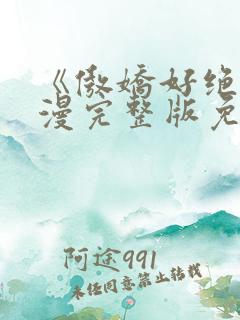 《傲娇好绝
漫完整版免
阿途991
未经同意禁止转载